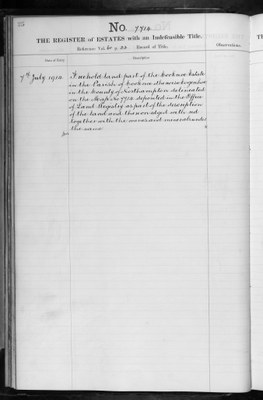 No. 7714.
THE REGISTER of ESTATES with an Indefeasible Title.
Record of Title.
Observations.
Date of Entry
Description
7th July 1914. Freehold land part of the Estate
in the Parish of
in the County of Northampton delineated
on the Map No 7714 deposited in the Office
of Land Registry as part of the description
of the land and thereon edged with red
together with the mines and minerals under
the same